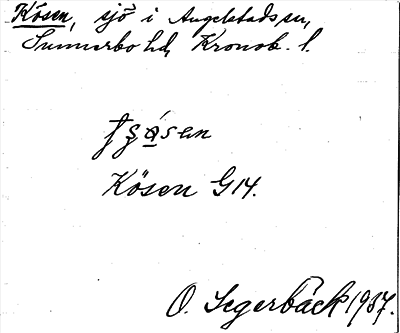 Kösen, sjö i Angelstads sn,
Sunnerbo hd, Kronob. l.
Kösen G14.
O. Segerbäck 1937.